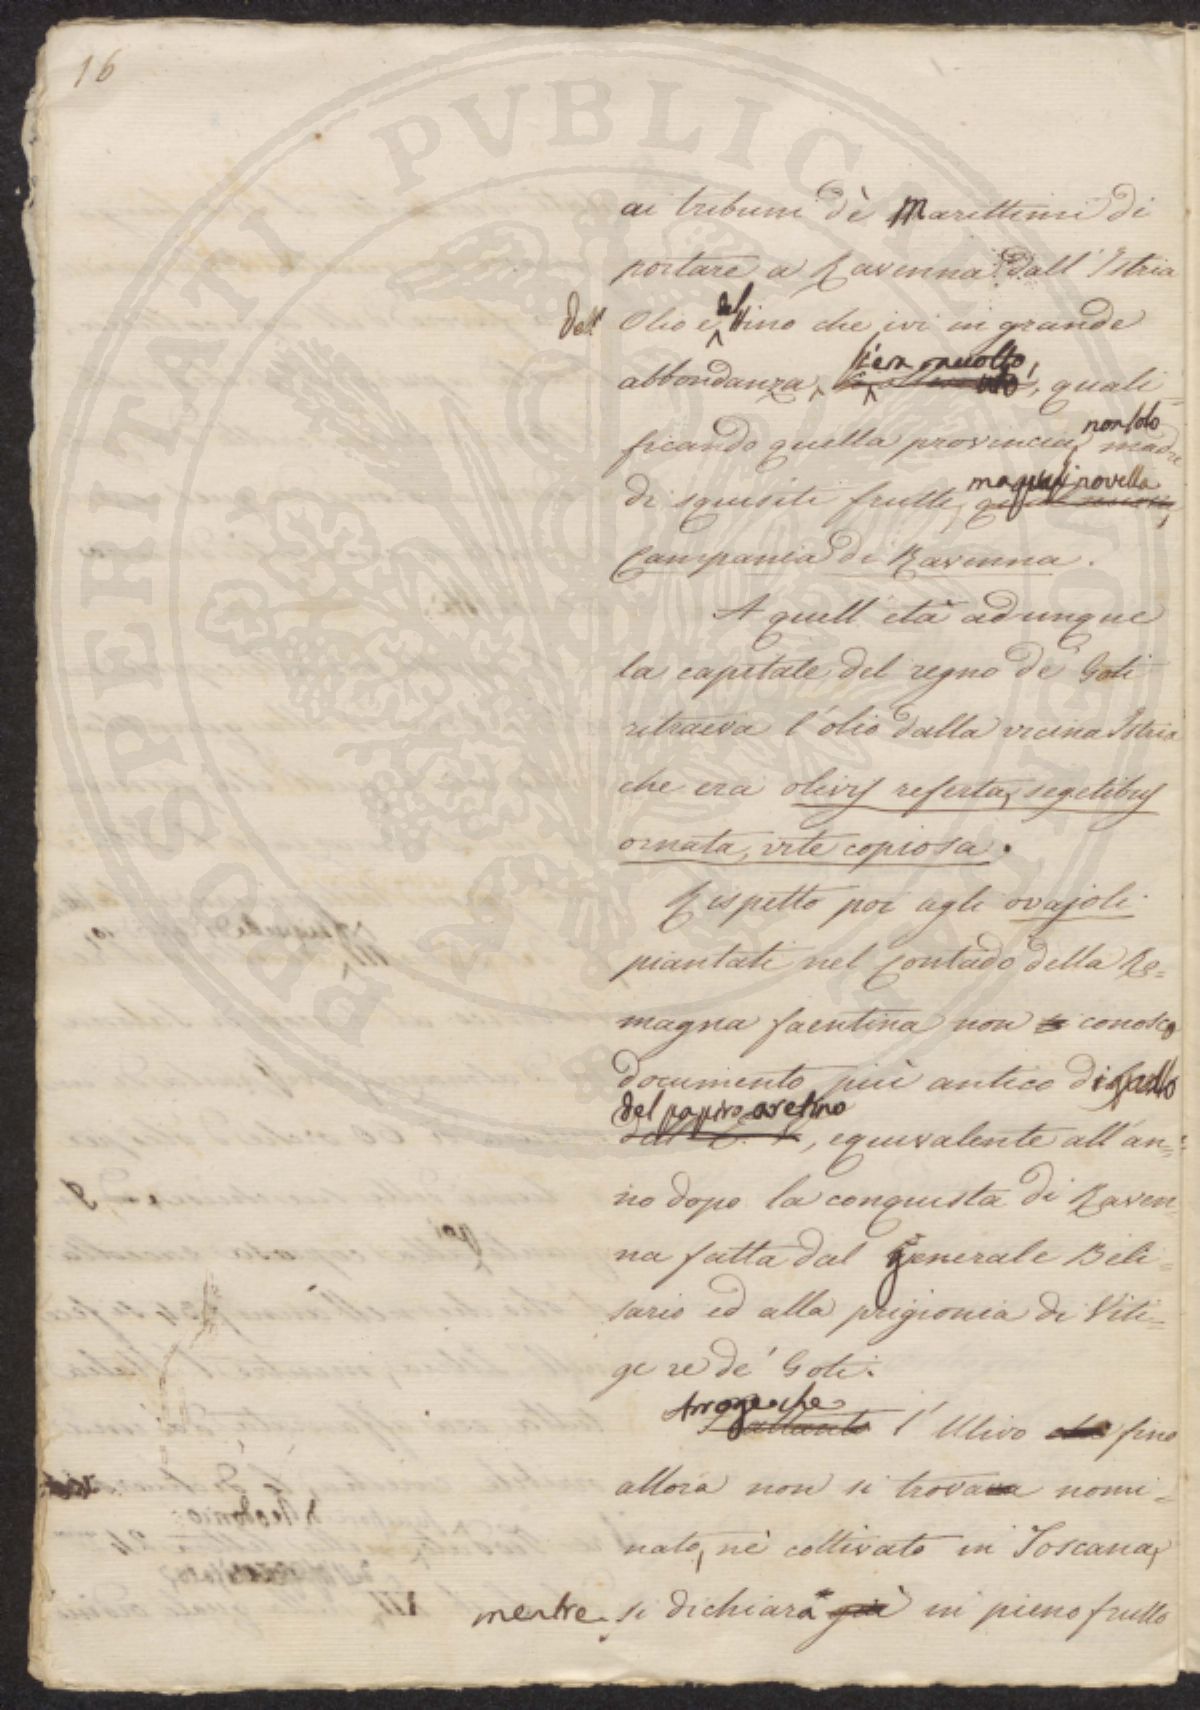 16
ai tribuni dè Marittimi di
portare a Ravenna dall'Istria
dell' Olio e del Vino che ivi in grande
abbondanza s'era raccolto, quali=
ficando quella provincia, non solo madre
di squisiti frutti, ma quasi novella
Campania di Ravenna.
A quell'età adunque
la capitale del regno de' Goti
ritraeva l'olio dalla vicina Istria
che era olivis referta, segetibus
ornata, vite copiosa.
Rispetto poi agli ovajoli
piantati nel contado della Ro=
magna faentina non conosco
documento più antico di quello
del papiro aretino, equivalente all'an=
no dopo la conquista di Raven=
na fatta dal Generale Beli=
sario ed alla prigionia di Viti=
ge re de' Goti.
Arroge che l'Ulivo fino
allora non si trova nomi=
nato, nè coltivato in Toscana,
mentre si dichiara già in pieno frutto
PROSPERITATI PVBLICAE